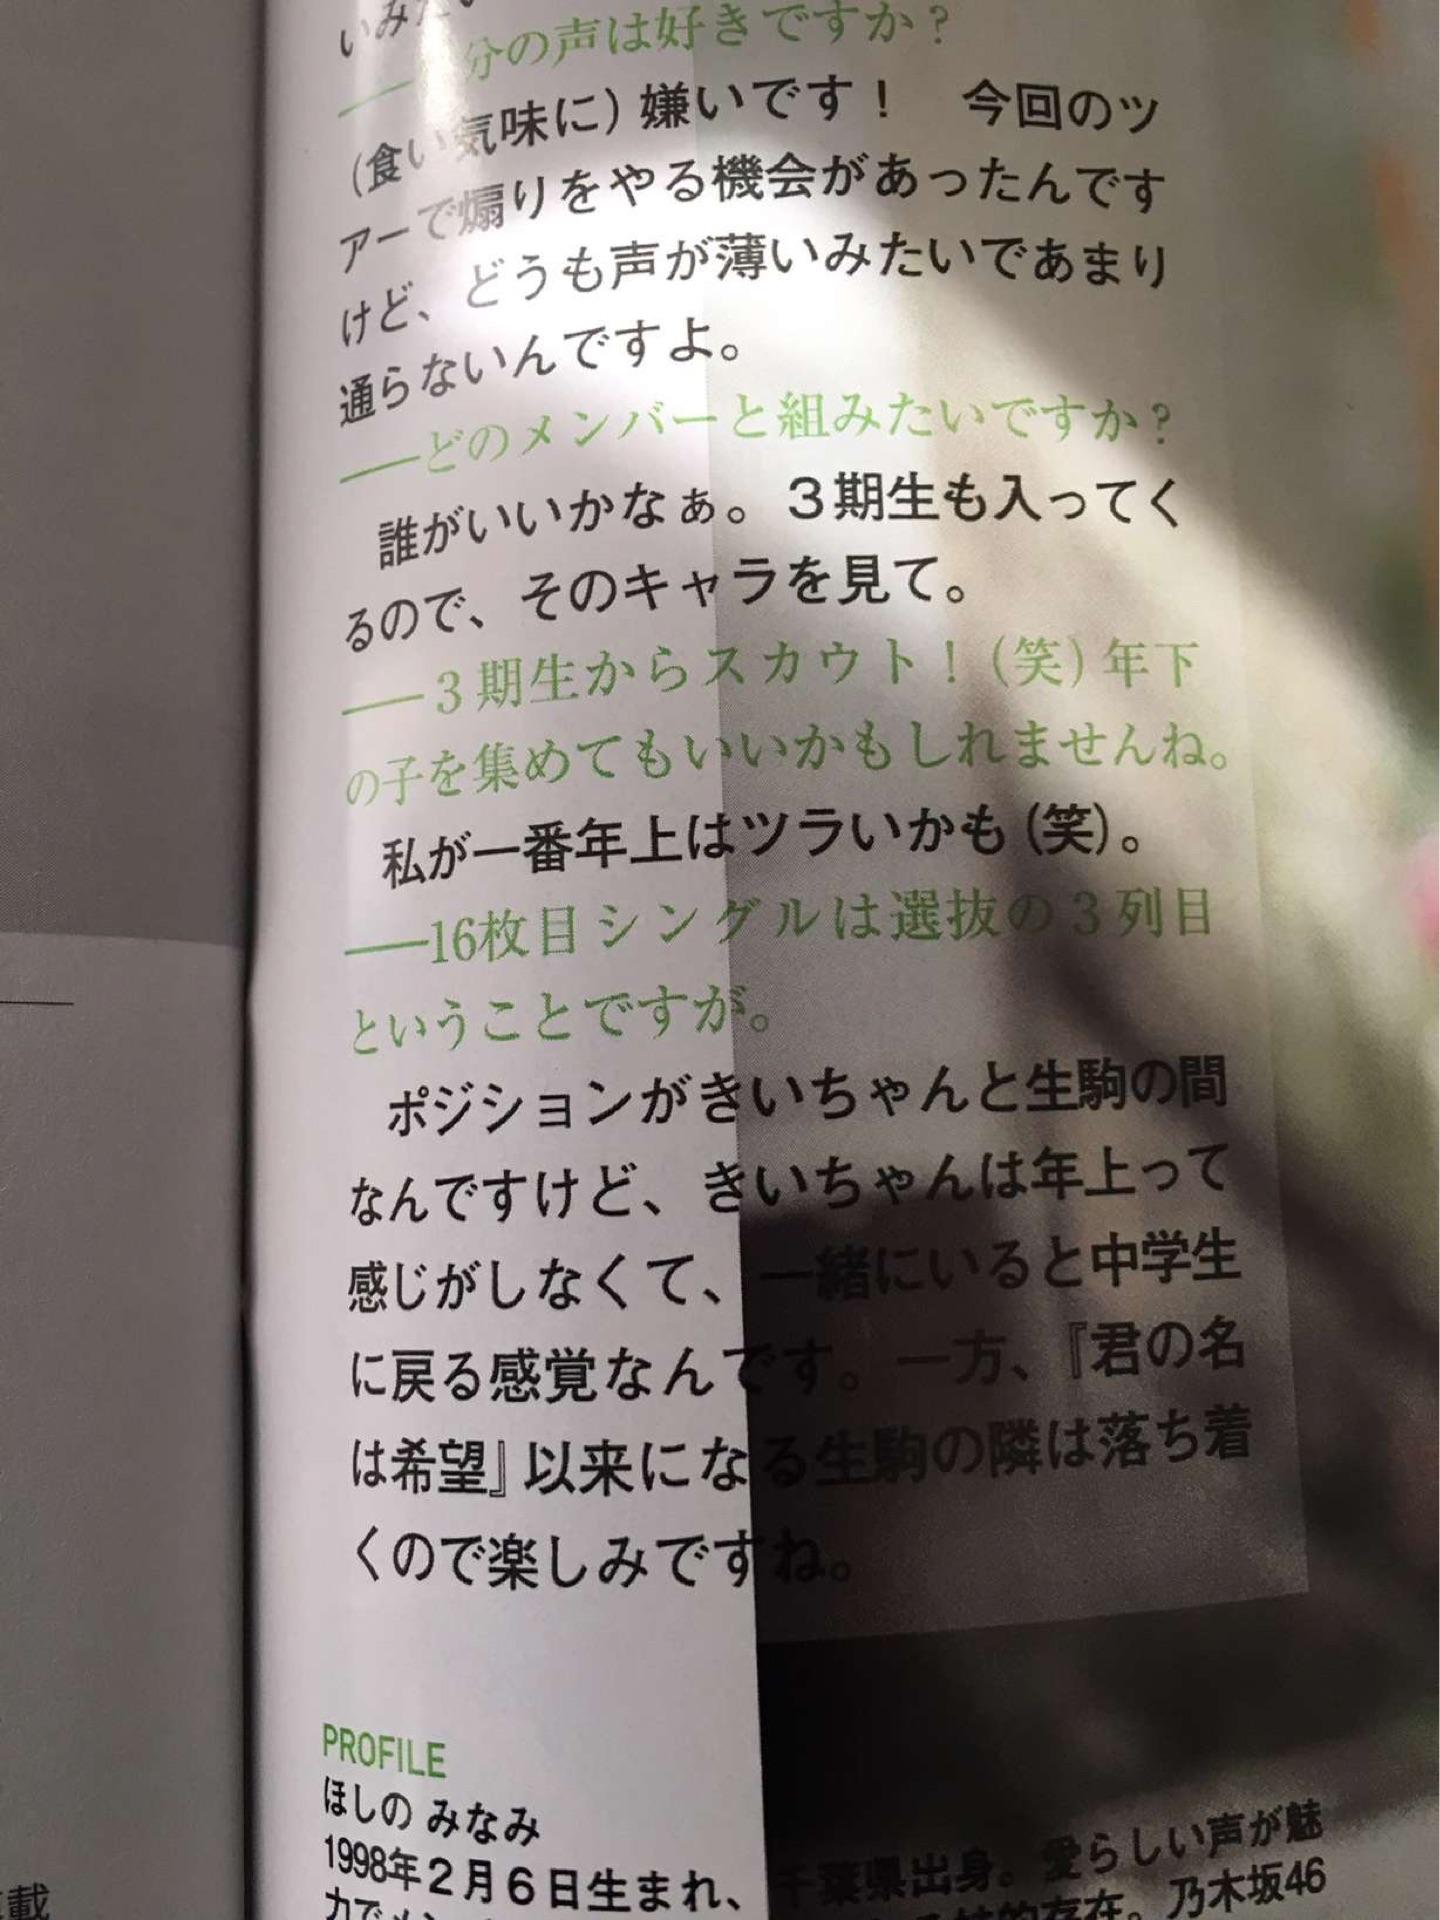 いみたい
分の声は好きですか?
(食い気味に)嫌いです! 今回のツ
アーで煽りをやる機会があったんです
けど、どうも声が薄いみたいであまり
通らないんですよ。
──どのメンバーと組みたいですか?
誰がいいかなぁ。3期生も入ってく
るので、そのキャラを見て。
──3期生からスカウト!(笑)年下
の子を集めてもいいかもしれませんね。
私が一番年上はツラいかも(笑)。
──16枚目シングルは選抜の3列目
ということですが。
ポジションがきいちゃんと生駒の間
なんですけど、きいちゃんは年上って
感じがしなくて、一緒にいると中学生
に戻る感覚なんです。一方、『君の名
は希望』以来になる生駒の隣は落ち着
くので楽しみですね。
PROFILE
ほしの みなみ
1998年2月6日生まれ、千葉県出身。愛らしい声が魅
力でメン 的存在。乃木坂46
載